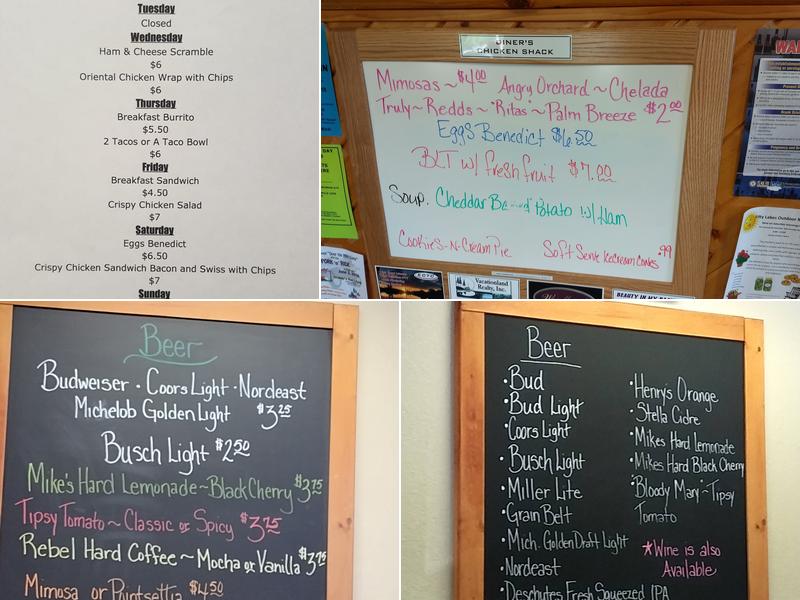 Tuesday
Closed
Wednesday
Ham & Cheese Scramble
$6
Oriental Chicken Wrap with Chips
$6
Thursday
Breakfast Burrito
$5.50
2 Tacos or A Taco Bowl
$6
Friday
Breakfast Sandwich
$4.50
Crispy Chicken Salad
$7
Saturday
Eggs Benedict
$6.50
Crispy Chicken Sandwich Bacon and Swiss with Chips
$7
Sunday
DINER'S
CHICKEN SHACK
Mimosas ~ $4.00 Angry Orchard ~ Chelada
Truly ~ Redds ~ "Ritas" ~ Palm Breeze $2.00
Eggs Benedict $6.50
BLT w/ fresh fruit $7.00
Soup. Cheddar Potato w/ Ham
Cookies-N-Cream Pie Soft Serve Icecream Cones .99
Vacationland
Realty, Inc.
BEAUTY IN MY
Beer
Budweiser · Coors Light · Nordeast
Michelob Golden Light $3.25
Busch Light $2.50
Mike's Hard Lemonade ~ Black Cherry $3.75
Tipsy Tomato ~ Classic or Spicy $3.75
Rebel Hard Coffee ~ Mocha or Vanilla $3.75
Mimosa or Pointsettia $4.50
Beer
• Bud
• Bud Light
• Coors Light
• Busch Light
• Miller Lite
• Grain Belt
• Mich. Golden Draft Light
• Nordeast
• Deschutes Fresh Squeezed IPA
• Henry's Orange
• Stella Cidre
• Mikes Hard Lemonade
• Mikes Hard Black Cherry
• Bloody Mary ~ Tipsy
Tomato
* Wine is also
Available